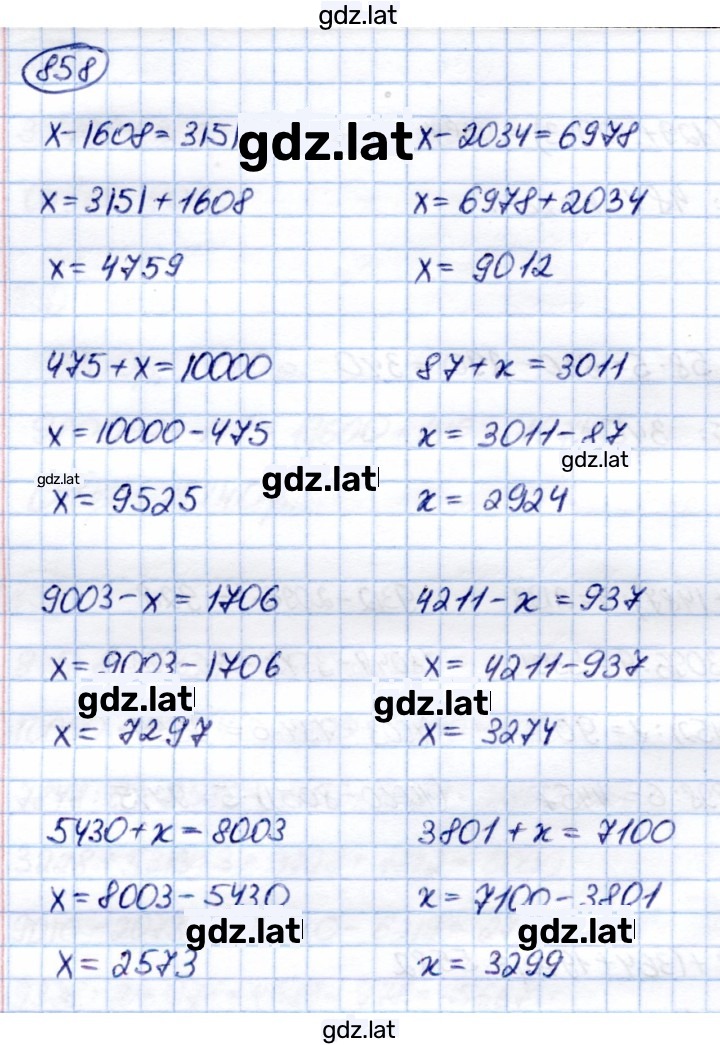 gdz.lat
858
x-1608=3151 gdz.lat x-2034=6978
x=3151+1608 x=6978+2034
x=4759 x=9012
475+x=10000 87+x=3011
x=10000-475 x=3011-87
gdz.lat gdz.lat gdz.lat
x=9525 x=2924
9003-x=1706 4211-x=937
x=9003-1706 x=4211-937
gdz.lat gdz.lat
x=7297 x=3274
5430+x=8003 3801+x=7100
x=8003-5430 x=7100-3801
gdz.lat gdz.lat
x=2573 x=3299
gdz.lat